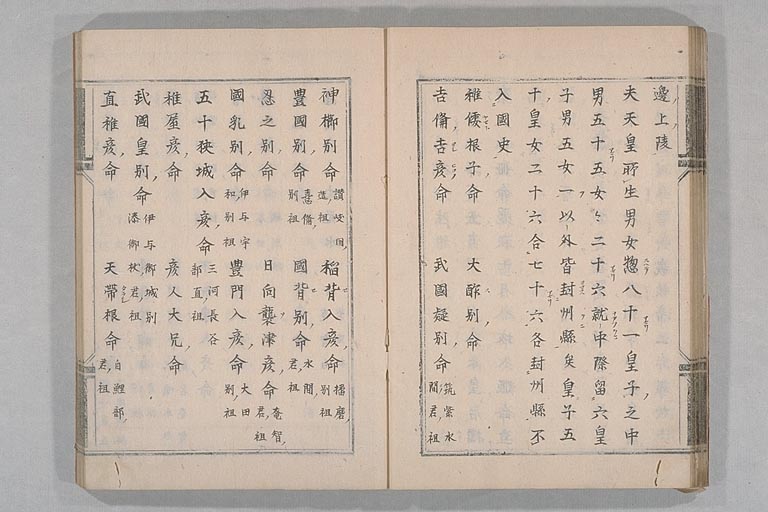 邊上陵
夫天皇所生男女惣八十一皇子之中
男五十五女〻二十六就中際留六皇
子男五女一以外皆封州縣矣皇子五
十皇女二十六合七十六各封州縣不
入國史
稚倭根子命 大酢別命
吉備吉彦命 武國凝別命 筑紫水間君祖
神櫛別命 讃岐國造祖 稻背入彦命 播磨別祖
豊國別命 喜備別祖 國背別命 水間君祖
忍之別命 日向襲津彦命 奄智君祖
國乳別命 伊与宇和別祖 豊門入彦命 大田別祖
五十狭城入彦命 三河長谷部直祖
稚屋彦命 彦人大兄命
武國皇別命 伊与御城別添御杖君祖
直稚彦命 天帶根命 白鯉部君祖